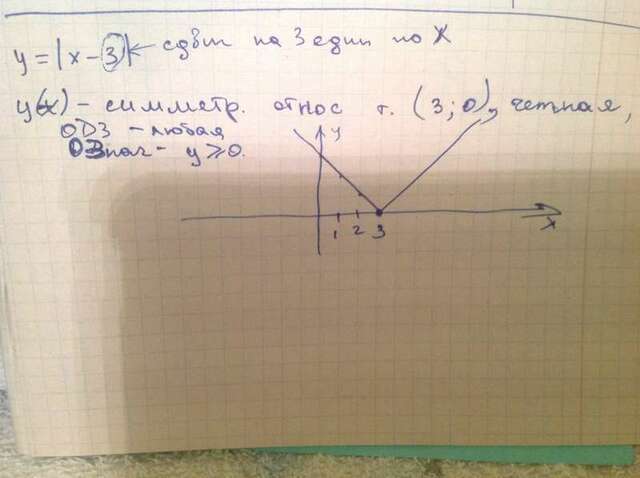 y = |x - 3| ← сдвиг на 3 един по X
y(x) - симметр. относ т. (3; 0), четная,
ОДЗ - любая
ОЗнач - y ≥ 0.
y
1 2 3
x